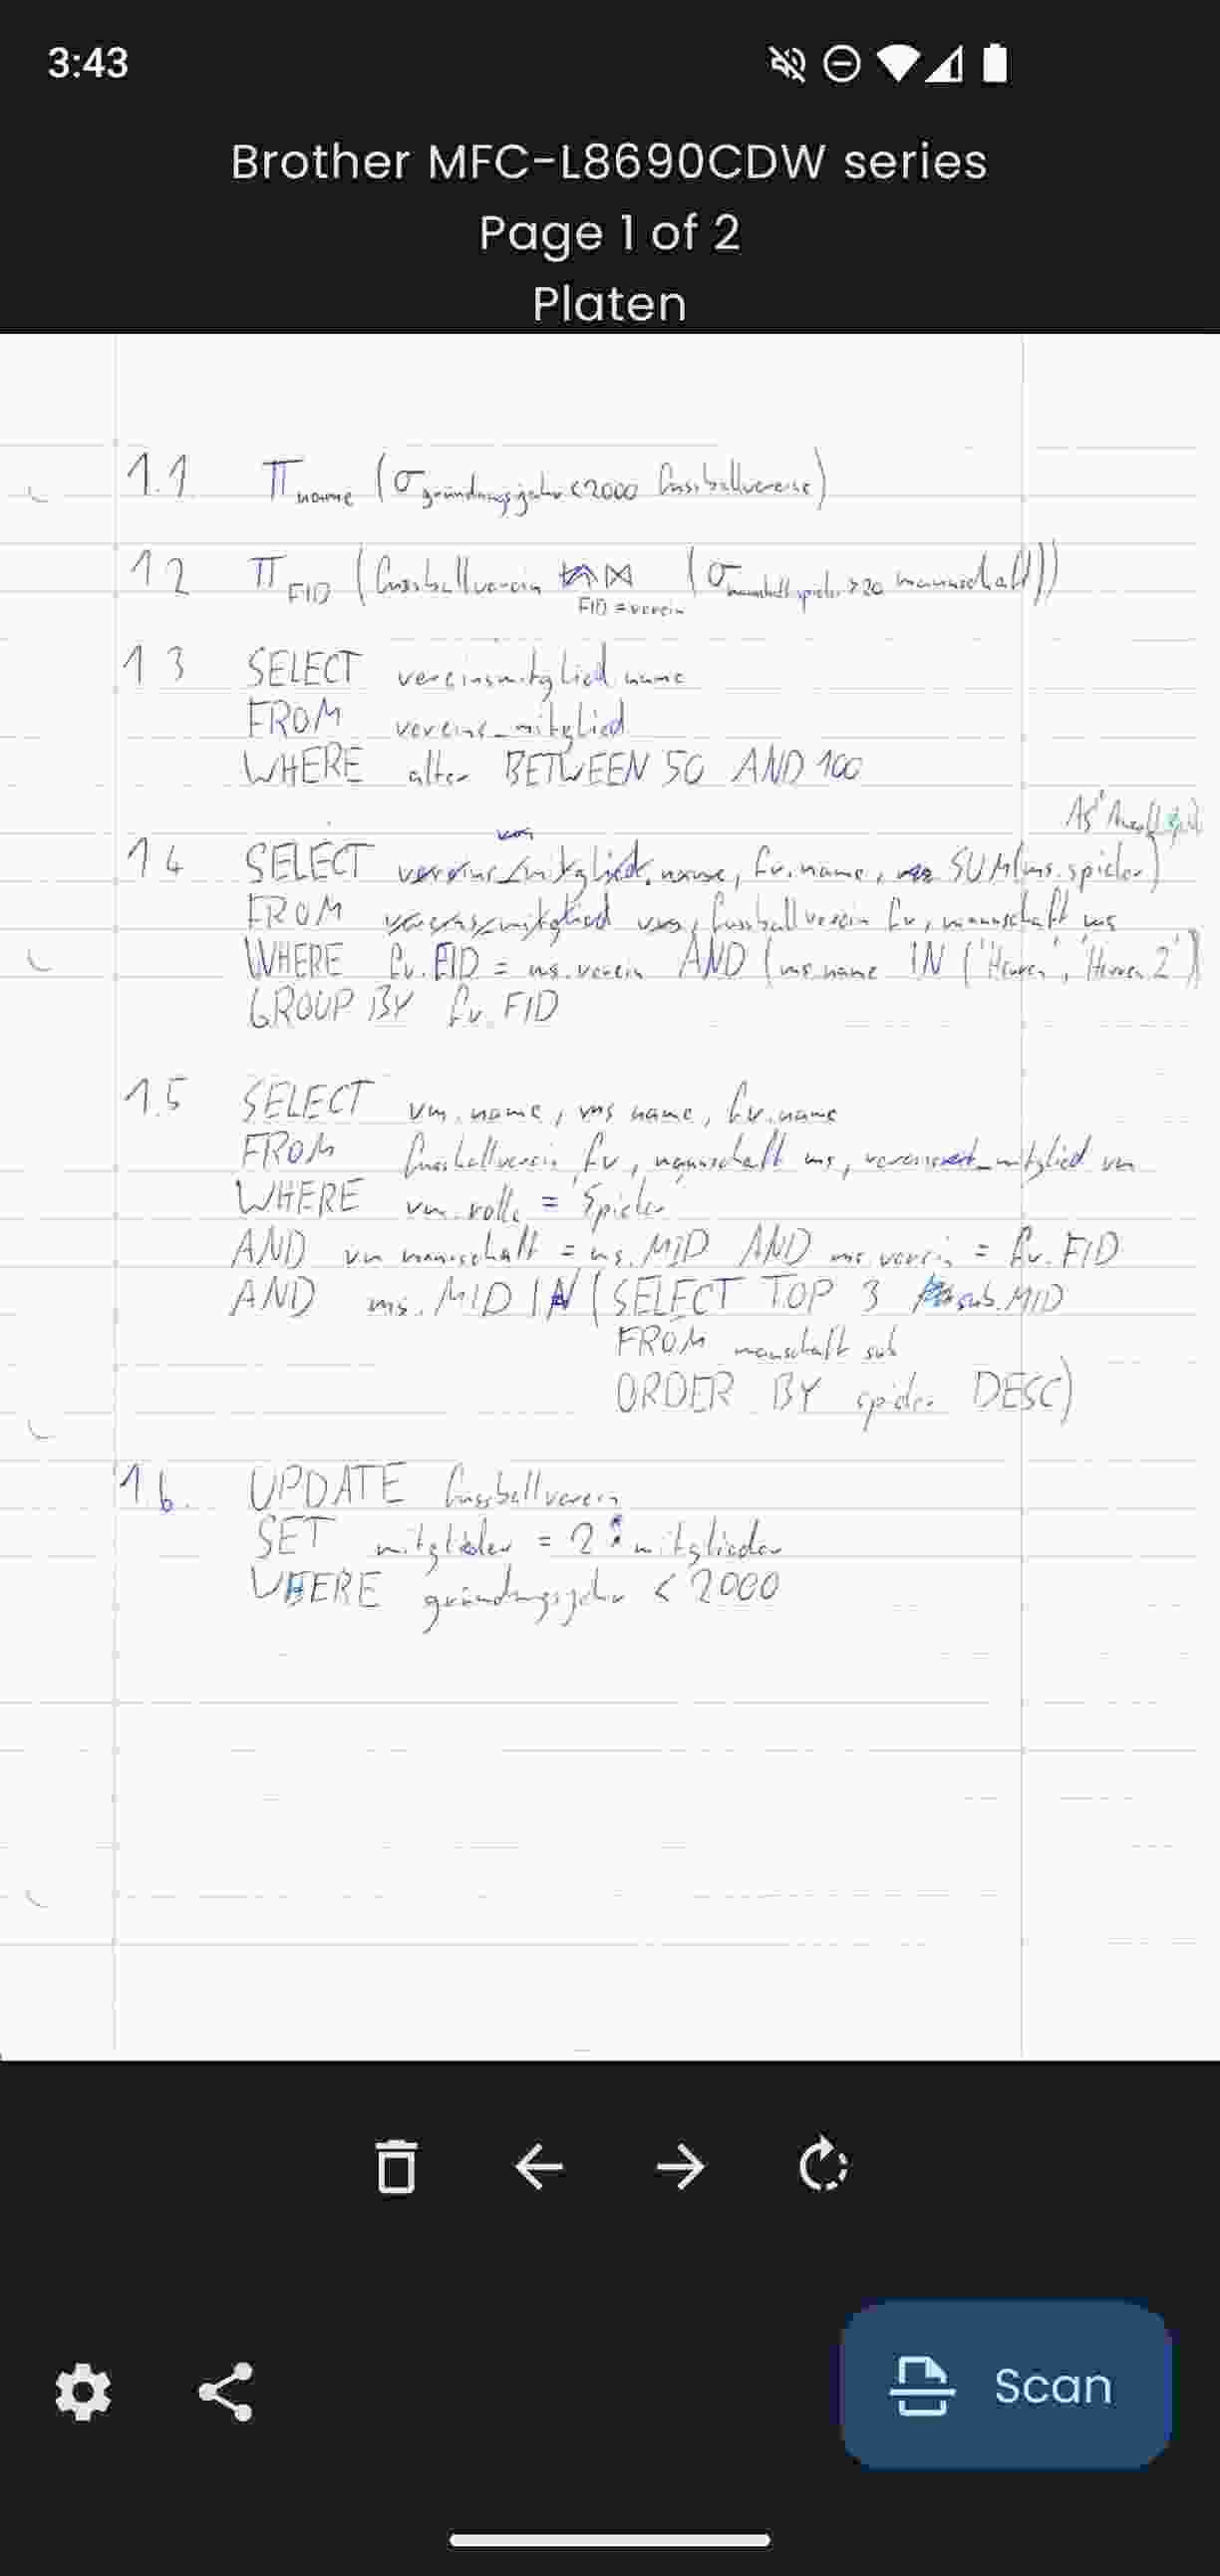 3:43
Brother MFC-L8690CDW series
Page 1 of 2
Platen
1.1 π name (σ gründungsjahr < 2000 fussballvereine)
1.2 π FID (fussballverein ⋈ (σ spieler > 20 mannschaft))
FID = verein
1.3 SELECT vereinsmitglied name
FROM vereins_mitglied
WHERE alter BETWEEN 50 AND 100
AS
1.4 SELECT fv.name, SUM(ms.spieler)
FROM fussballverein fv, mannschaft ms
WHERE fv.FID = ms.verein AND (ms.name IN ('Herren', 'Herren 2'))
GROUP BY fv.FID
1.5 SELECT vm.name, ms name, fv.name
FROM fussballverein fv, mannschaft ms, vereins_mitglied vm
WHERE vm.rolle = 'Spieler'
AND vm mannschaft = ms.MID AND ms.verein = fv.FID
AND ms.MID IN (SELECT TOP 3 sub.MID
FROM manschaft sub
ORDER BY spieler DESC)
1.6. UPDATE fussballverein
SET mitglieder = 2 * mitglieder
WHERE gründungsjahr < 2000
Scan